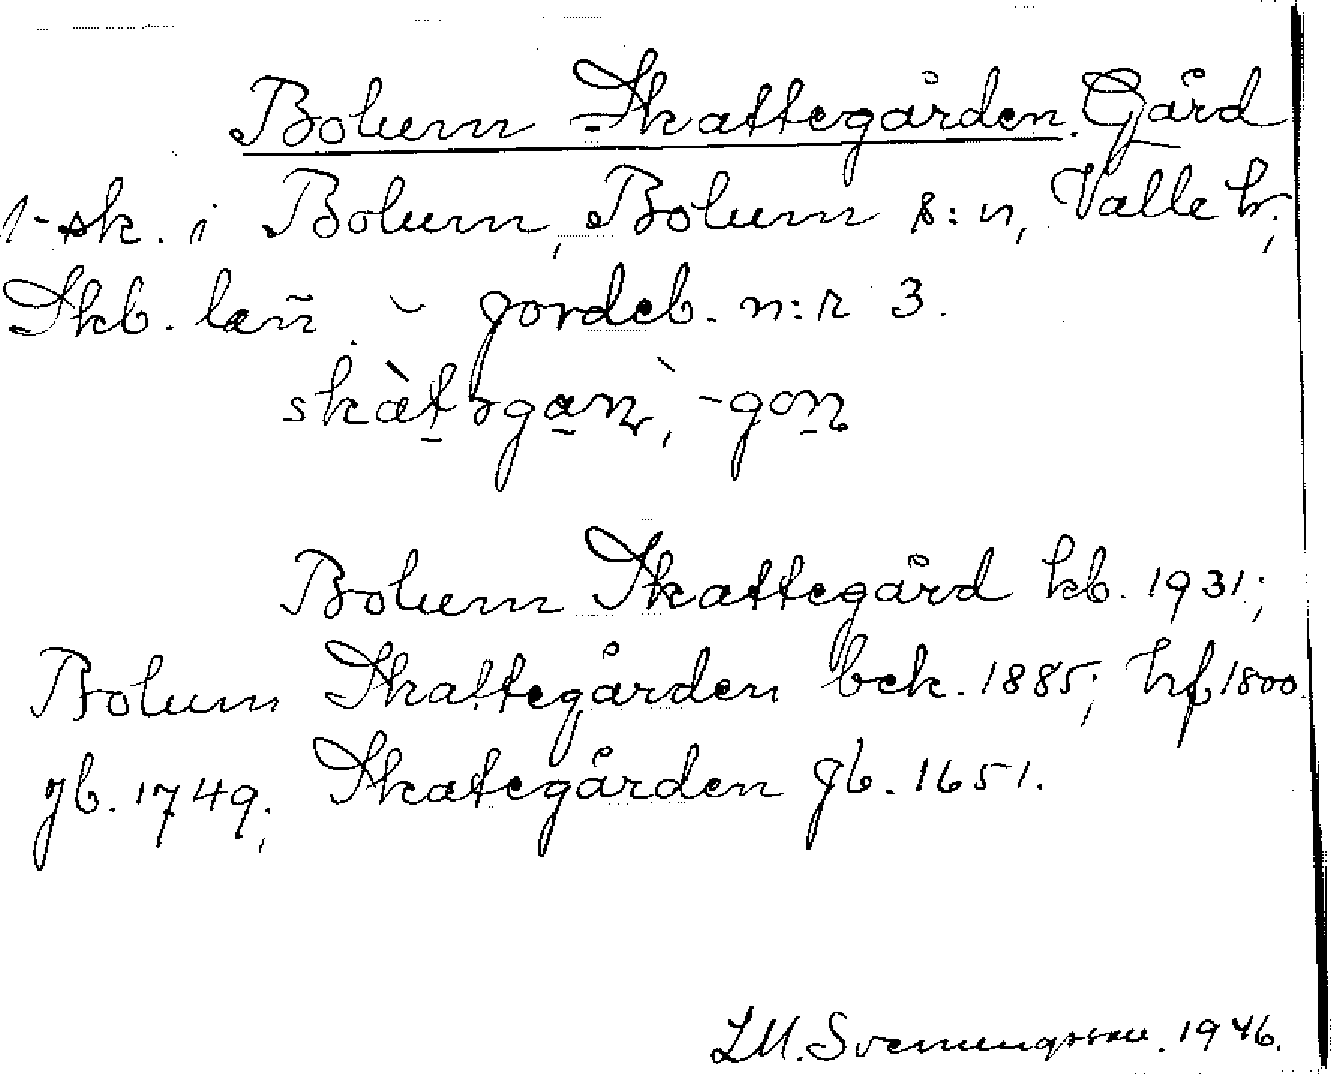 Bolum Skattegården. Gård
1 sk. i Bolum, Bolum s:n, Valle hr,
Skb. län. - Jordeb. n:r 3.
skàtəgaɳ, -gon
Bolum Skattegård kb. 1931;
Bolum Skattegården bek. 1885; hf 1800.
jb. 1749; Skategården jb. 1651.
LM. Svenungsson. 1946.